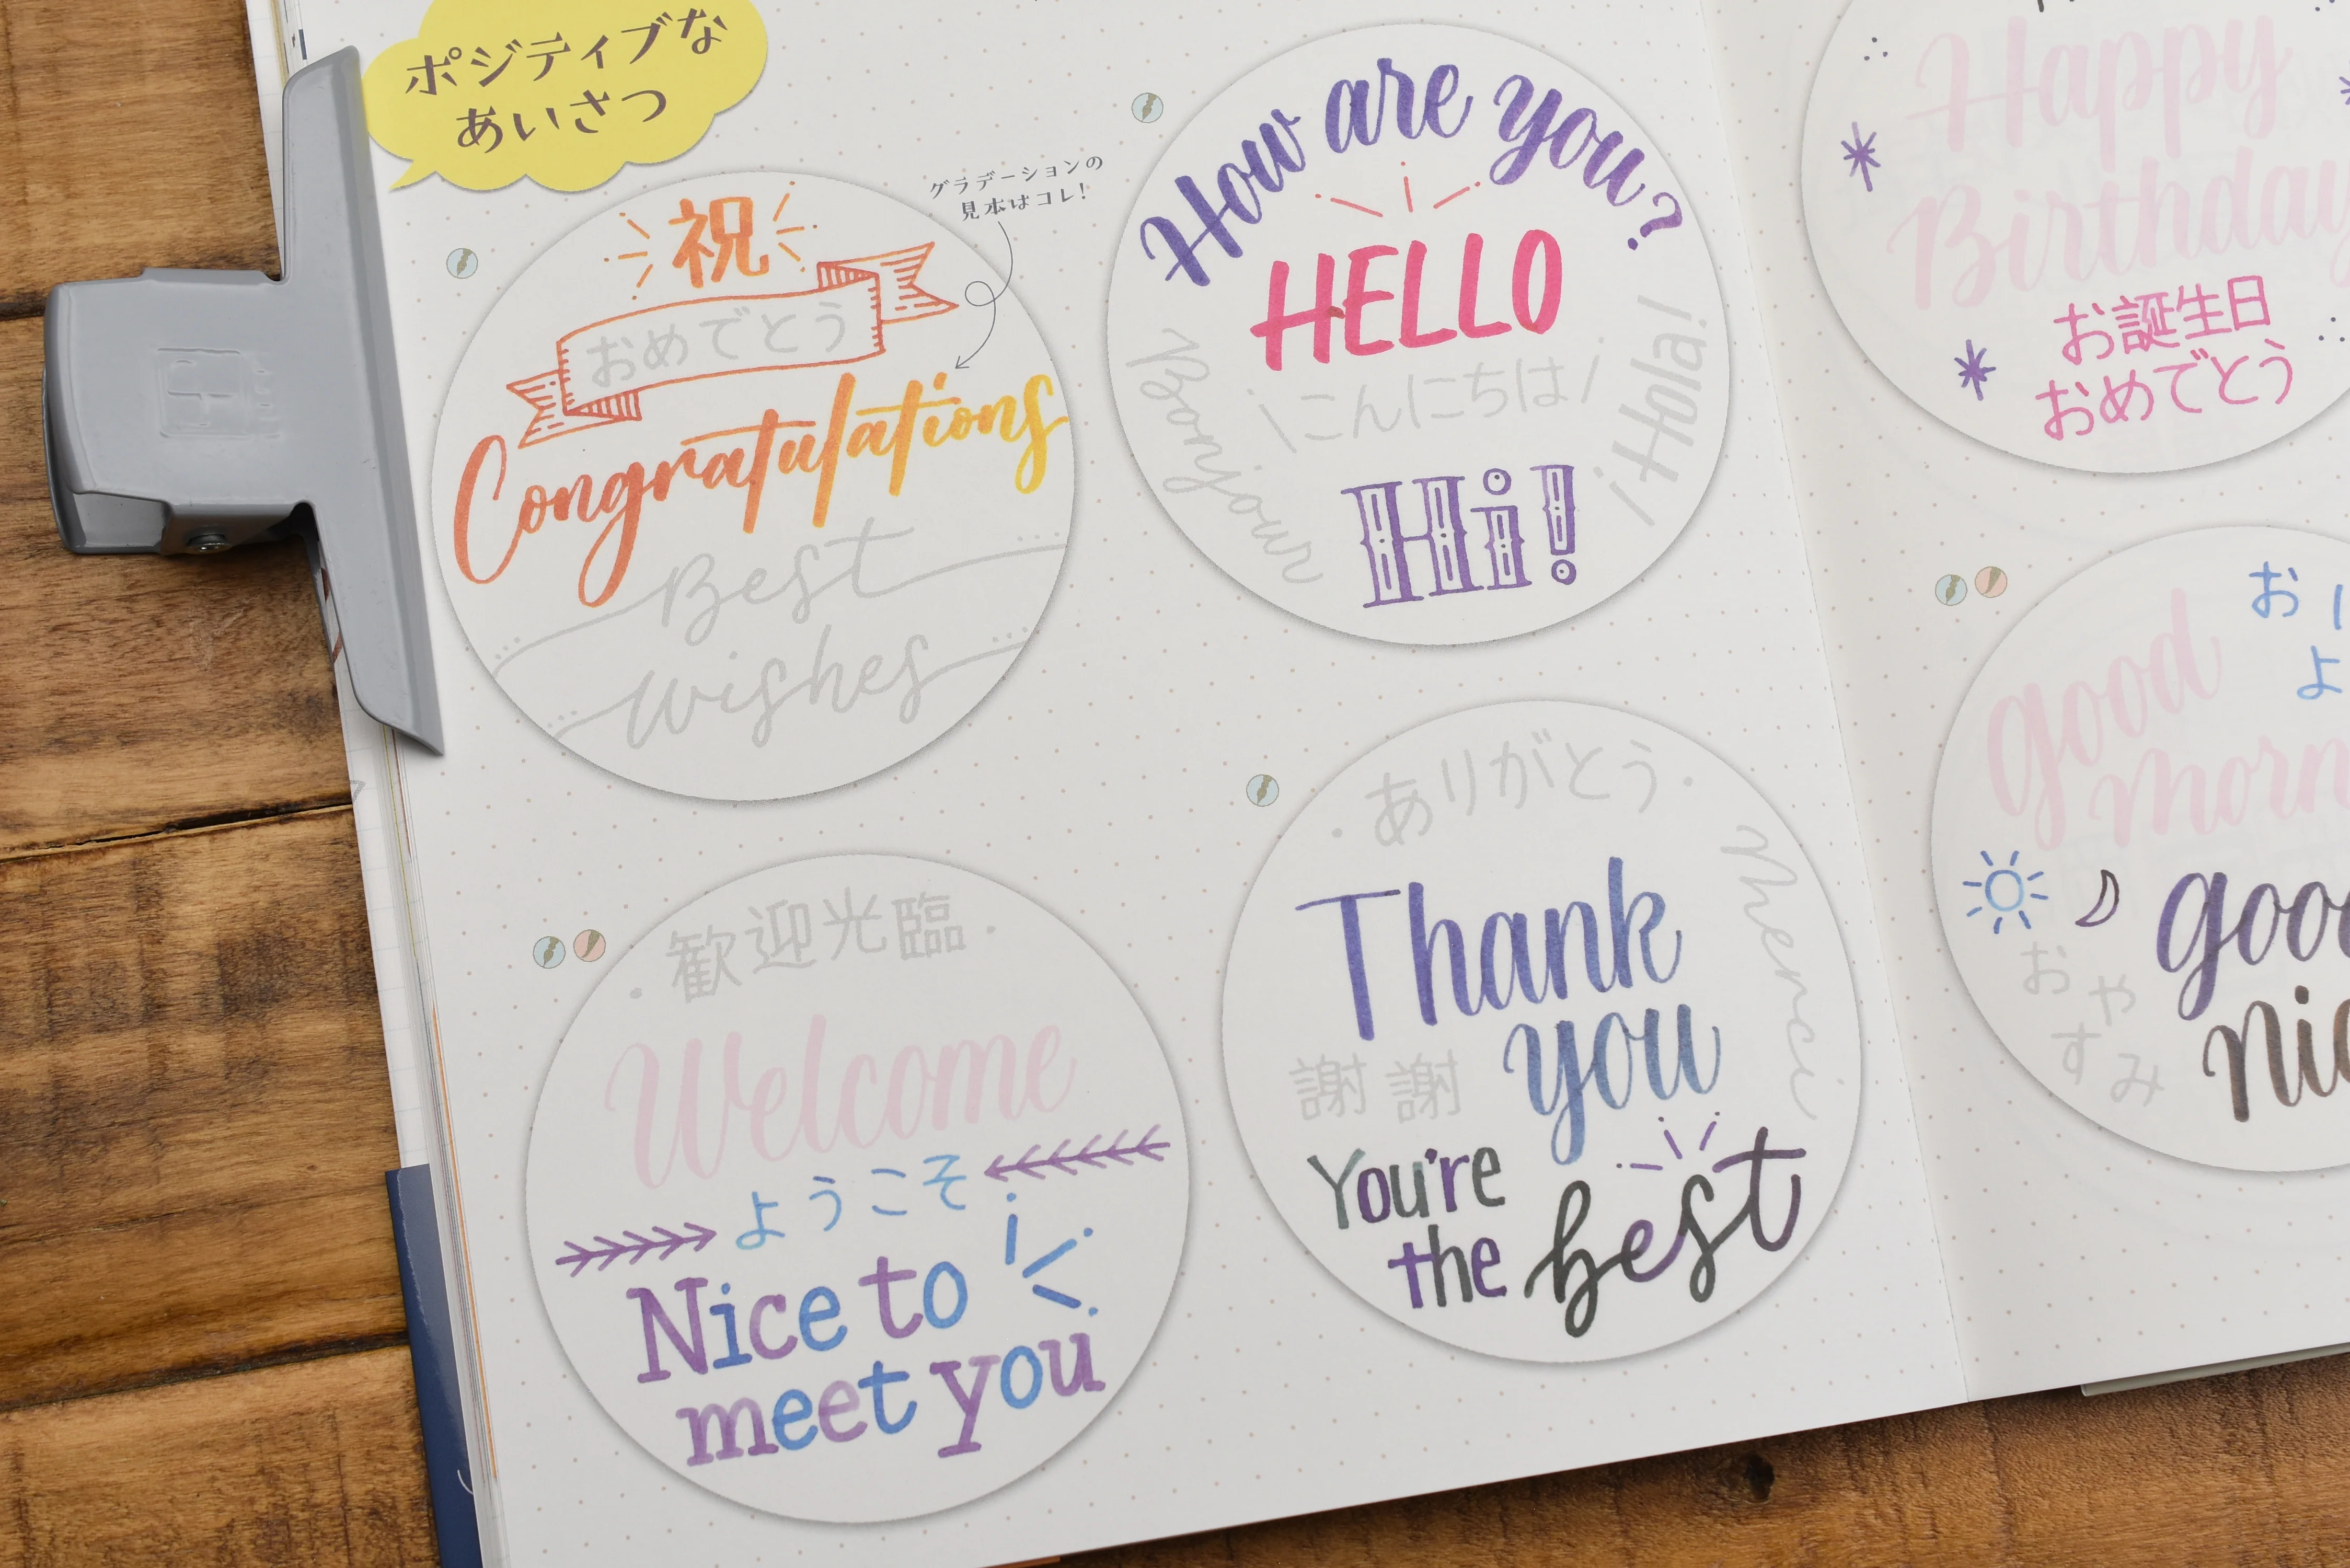 ポジティブな
あいさつ
グラデーションの
見本はコレ!
祝
おめでとう
Congratulations
Best
Wishes
How are you?
HELLO
こんにちは
Bonjour
¡Hola!
Hi!
歓迎光臨
Welcome
ようこそ
Nice to
meet you
ありがとう
Merci
Thank
you
謝謝
You're
the best
Happy
Birthday
お誕生日
おめでとう
good
お
よ
good
おやすみ